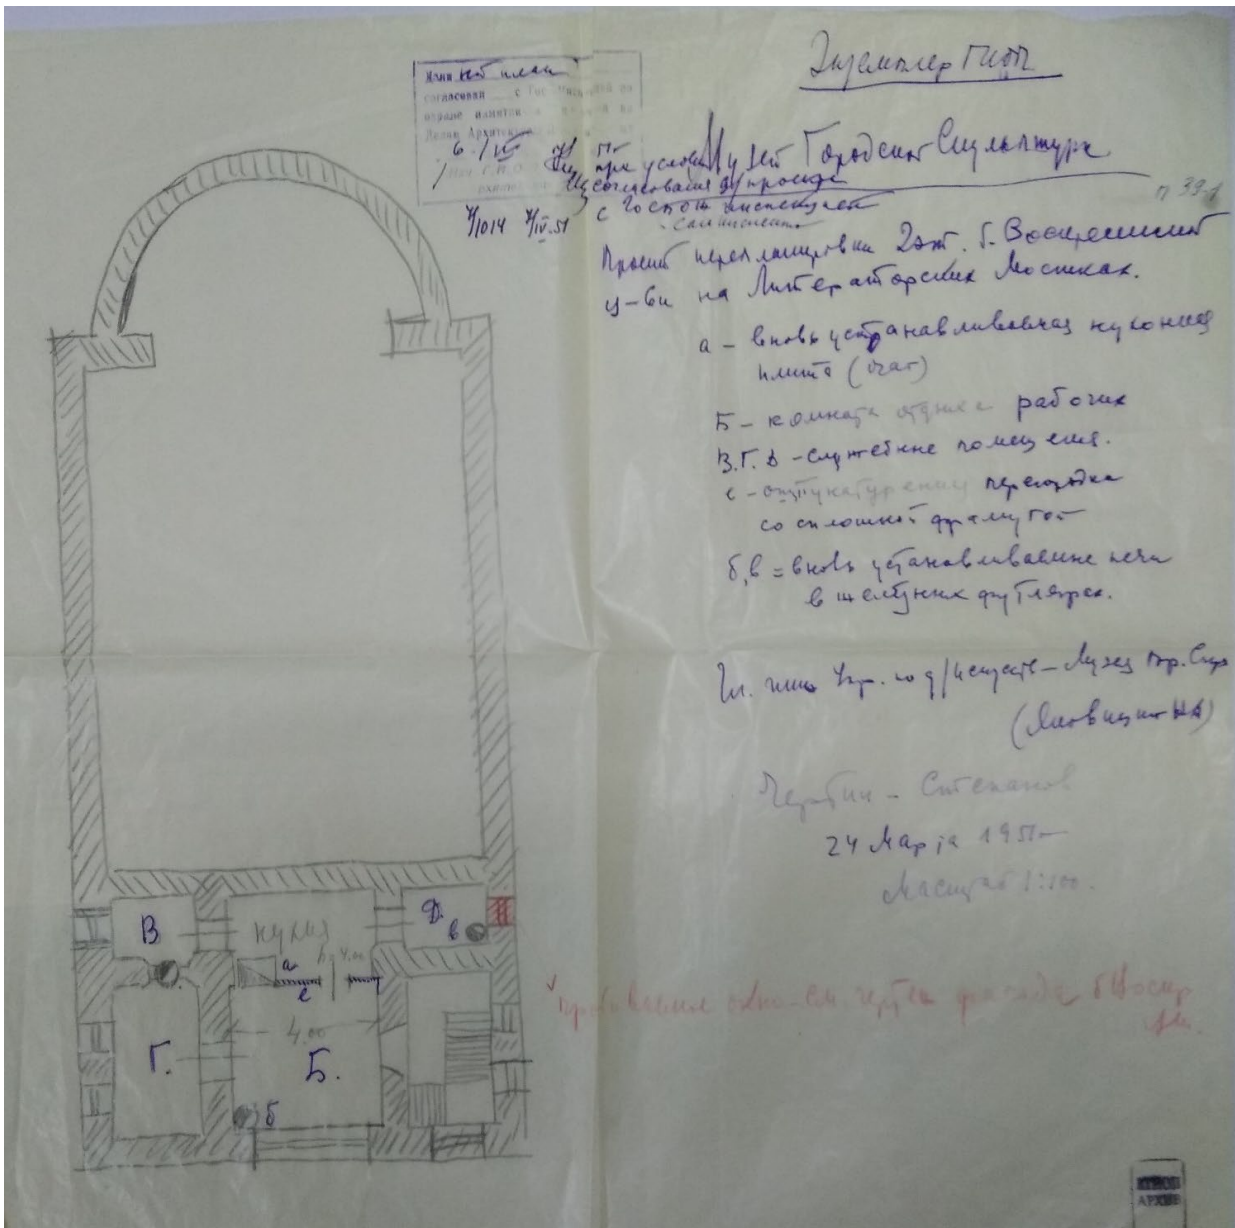 Экземпляр ГИОП
план
согласован с Гос. Инспекцией по
охране памятников
6/IV
при условии
согласования проекта
с Госпож инспекцией
4/1014 4/IV.51
Музей Городской Скульптуры
п 39-1
Проект перепланировки 2 эт. б. Воскресенской
ц-ви на Литераторских Мостках.
а – вновь устанавливаемая кухонная
плита (очаг)
Б – комната отдыха рабочих
В.Г.Д – служебные помещения.
е – оштукатуренная перегородка
со сплошной фрамугой
б, в = вновь устанавливаемые печи
в железных футлярах.
Гл. инж. Упр. по д/искусств – Музей Гор. Ск
Чертил – Степанов
24 Марта 1951
Масштаб 1:100.
В
кухня
Д.
в
а
h 4.00
е
4.00
Г.
Б.
б
пробиваемое окно – см. чертеж фасада
КГИОП
АРХИВ